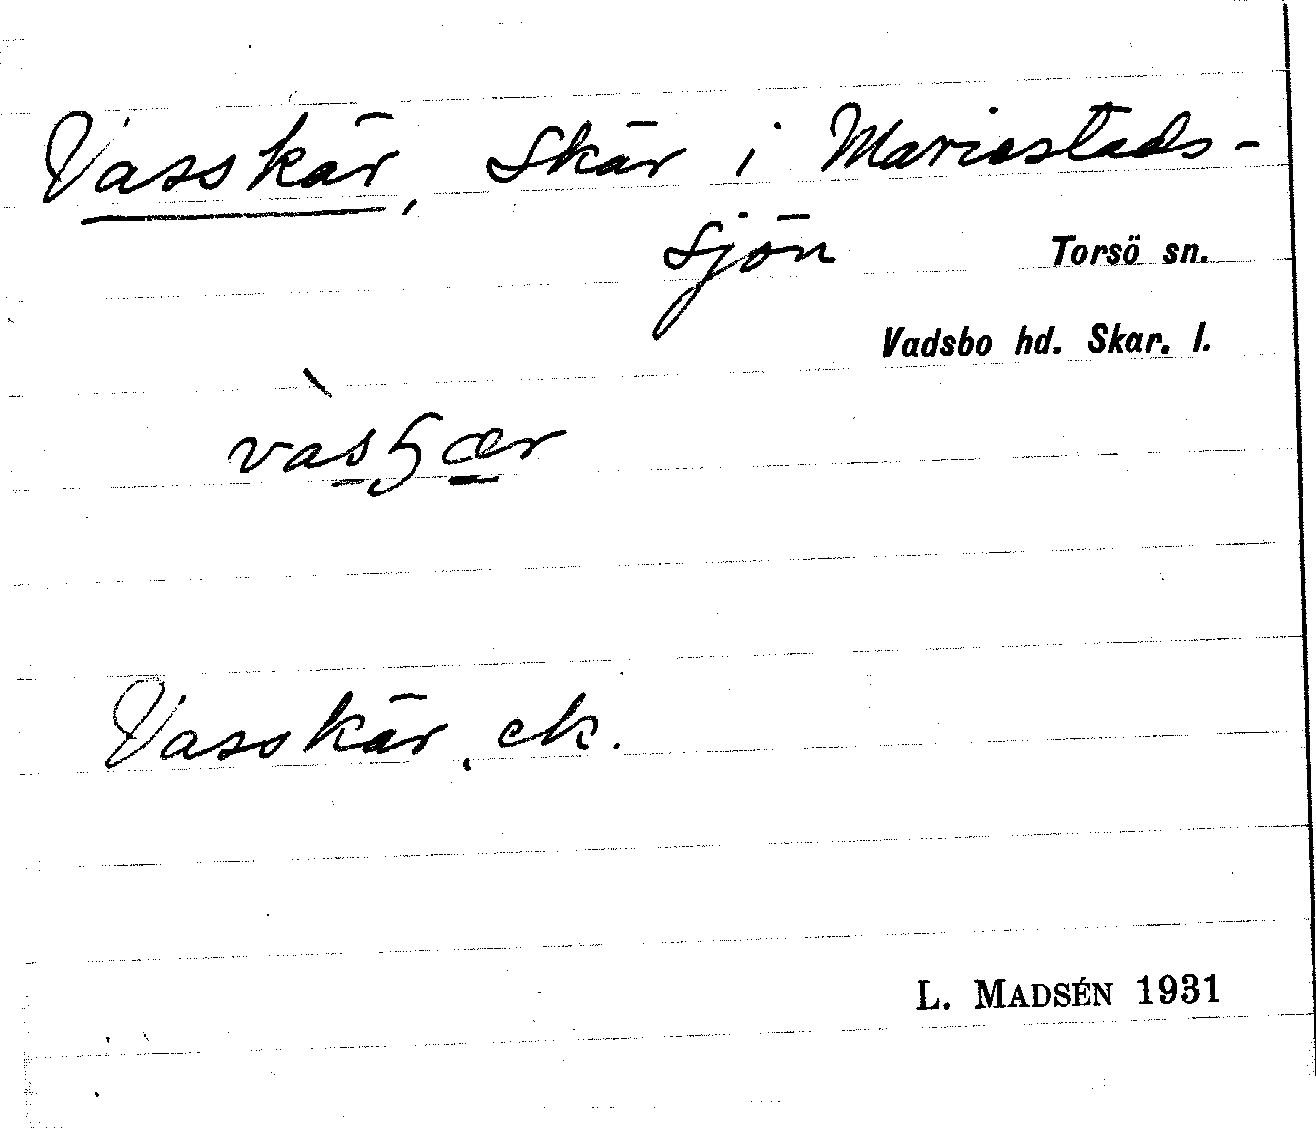 Vasskär, skär i Mariestads-
sjön
Torsö sn.
Vadsbo hd. Skar. l.
Vasskär, ek.
L. MADSÉN 1931